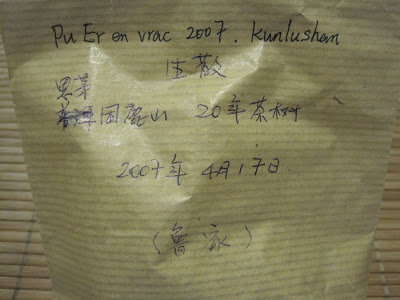 Pu Er en vrac 2007. Kunlushan
生散
思茅
困鹿山 20年茶树
2007年 4月17日
(鲁家)